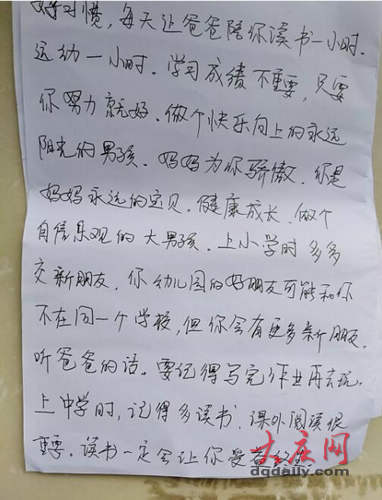 好习惯，每天让爸爸陪你读书一小时.
运动一小时. 学习成绩不重要，只要
你努力就好. 做个快乐向上的永远
阳光的男孩. 妈妈为你骄傲. 你是
妈妈永远的宝贝. 健康成长. 做个
自信乐观的大男孩. 上小学时多多
交新朋友. 你幼儿园的好朋友可能和你
不在同一个学校, 但你会有更多新朋友.
听爸爸的话. 要记得写完作业再去玩.
上中学时, 记得多读书. 课外阅读很
重要. 读书一定会让你受
大庆网
dqdaily.com